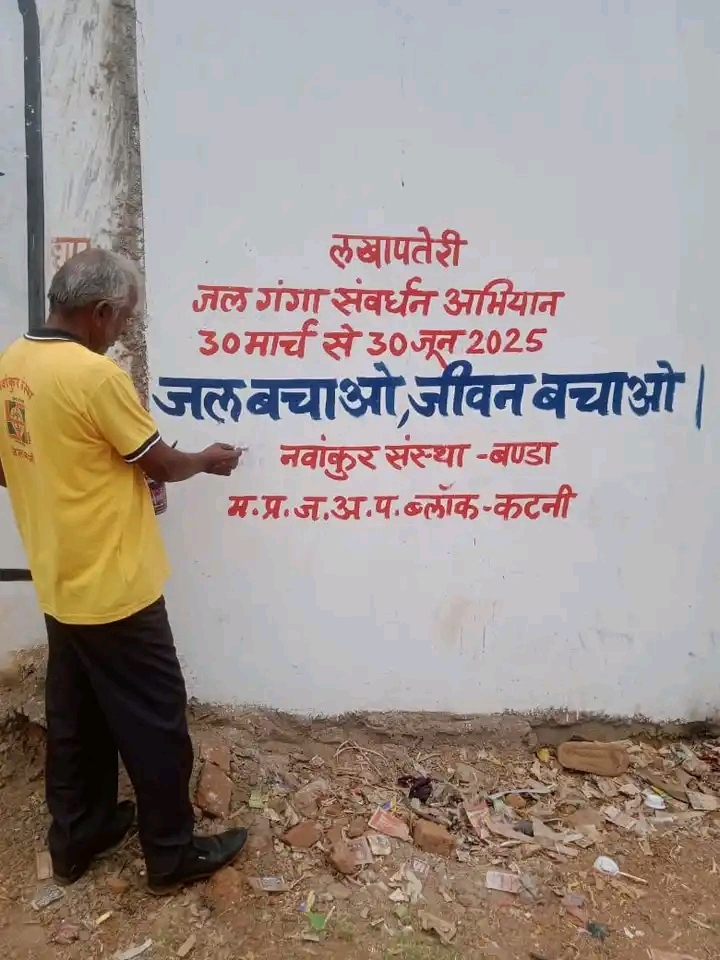 लखापतेरी
जल गंगा संवर्धन अभियान
30 मार्च से 30 जून 2025
जल बचाओ, जीवन बचाओ।
नवांकुर संस्था - बण्डा
म.प्र.ज.अ.प. ब्लॉक - कटनी